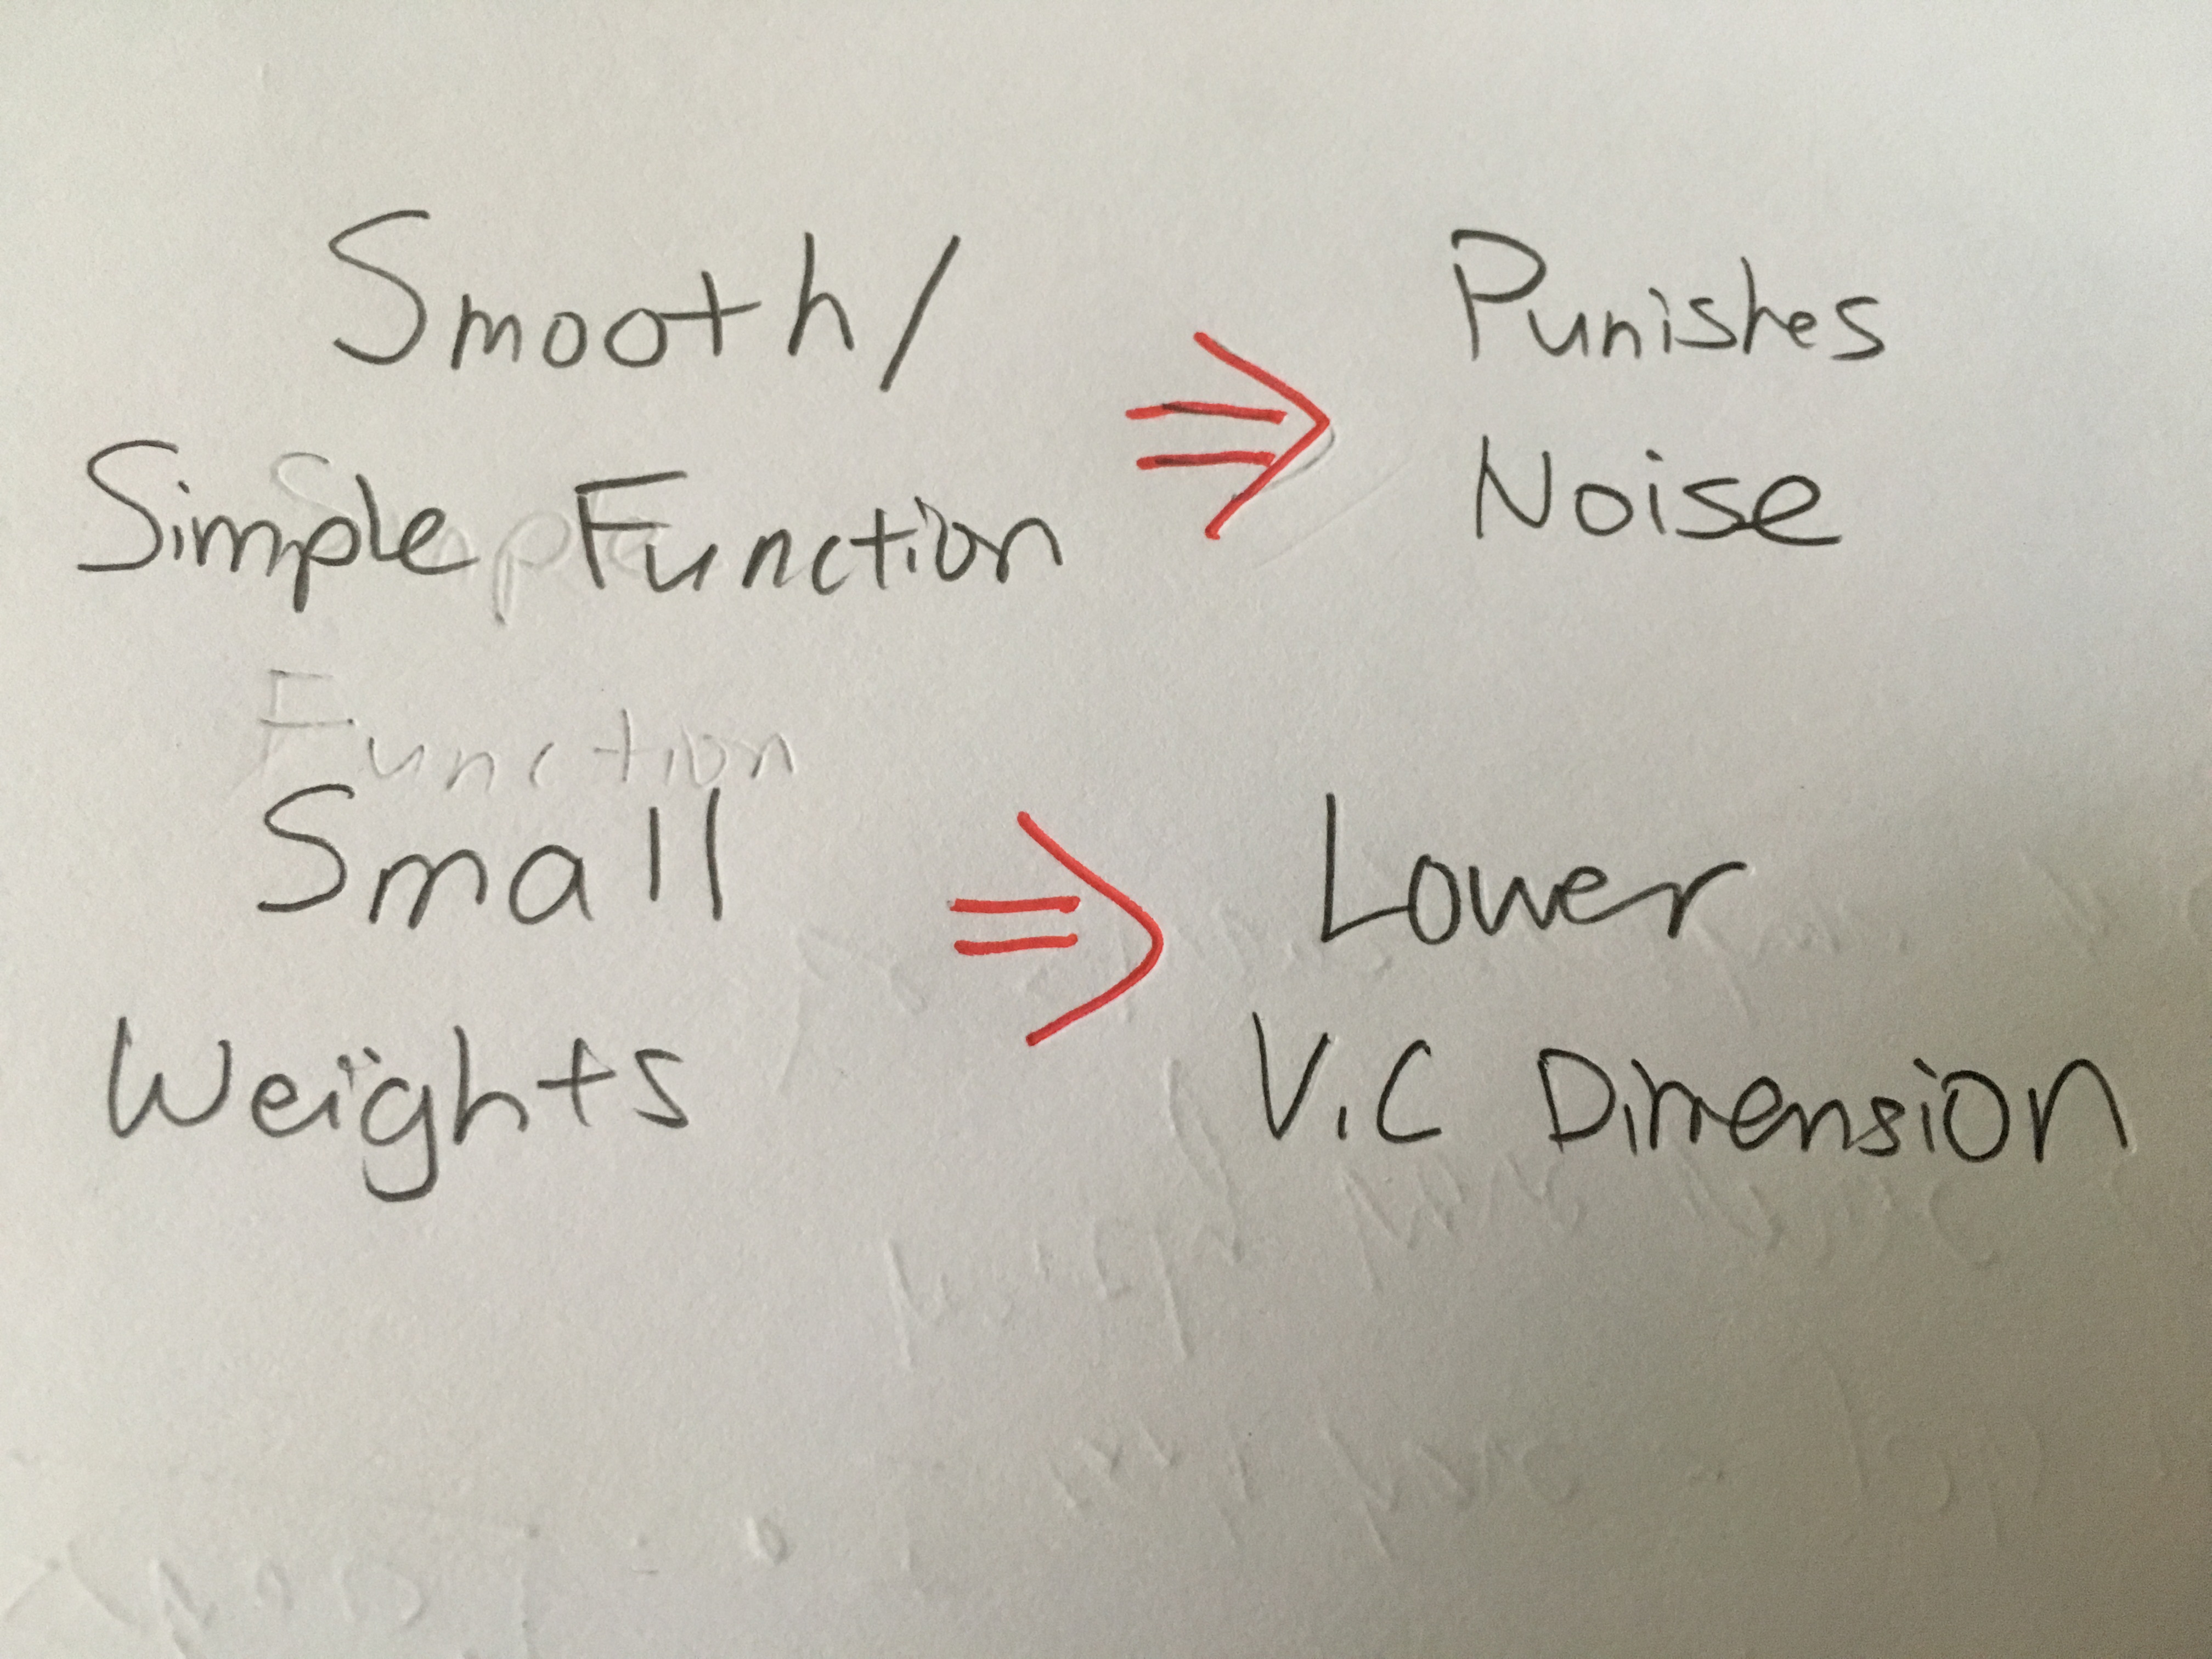 Smooth/
Simple Function
⇒
Punishes
Noise
Function
Small
Weights
⇒
Lower
V.C Dimension